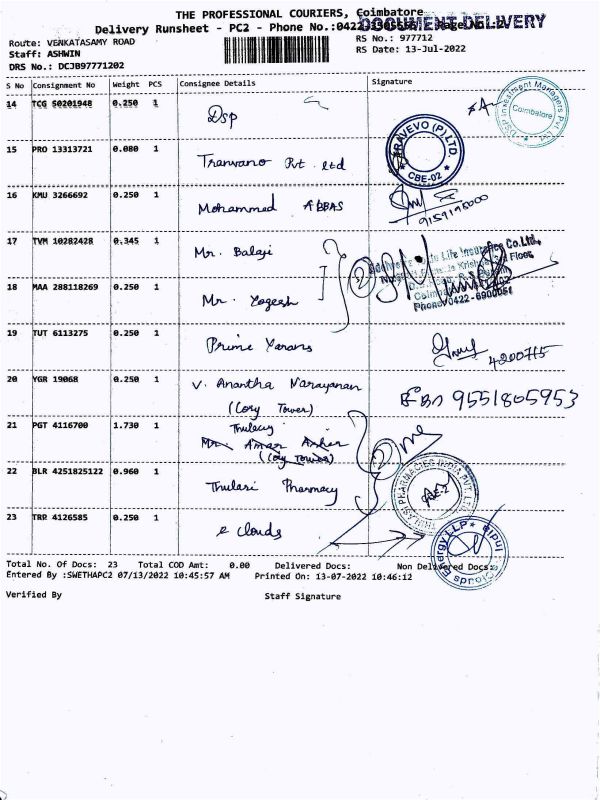 THE PROFESSIONAL COURIERS, Coimbatore
DOCUMENT DELIVERY
Delivery Runsheet - PC2 - Phone No.:0422
Route: VENKATASAMY ROAD
RS No.: 977712
Staff: ASHWIN
RS Date: 13-Jul-2022
DRS No.: DCJB97771202
S No Consignment No Weight PCS Consignee Details Signature
14 TCG 50201948 0.250 1 Dsp
DSP Investment Managers Pvt Ltd Coimbatore
15 PRO 13313721 0.080 1 Tranvano Pvt. Ltd
TRAVEVO (P) LTD. CBE-02
16 KMU 3266692 0.250 1 Mohammed ABBAS
9159195000
17 TVM 10282428 0.345 1 Mr. Balaji
Life Insurance Co.Ltd.
Floor
18 MAA 288118269 0.250 1 Mr. Yogesh
Phone: 0422 - 6900051
19 TUT 6113275 0.250 1 Prime Yarans
20 YGR 19068 0.250 1 V. Anantha Narayanan
(Cory Tower)
9551805953
21 PGT 4116700 1.730 1 Thulasi
(Cory Tower)
22 BLR 4251825122 0.960 1 Thulasi Pharmacy
THULASI PHARMACIES INDIA PVT. LTD. CBE-2
23 TRP 4126585 0.250 1 e clouds
eclouds Energy LLP India
Total No. Of Docs: 23 Total COD Amt: 0.00 Delivered Docs: Non Delivered Docs:
Entered By :SWETHAPC2 07/13/2022 10:45:57 AM Printed On: 13-07-2022 10:46:12
Verified By Staff Signature